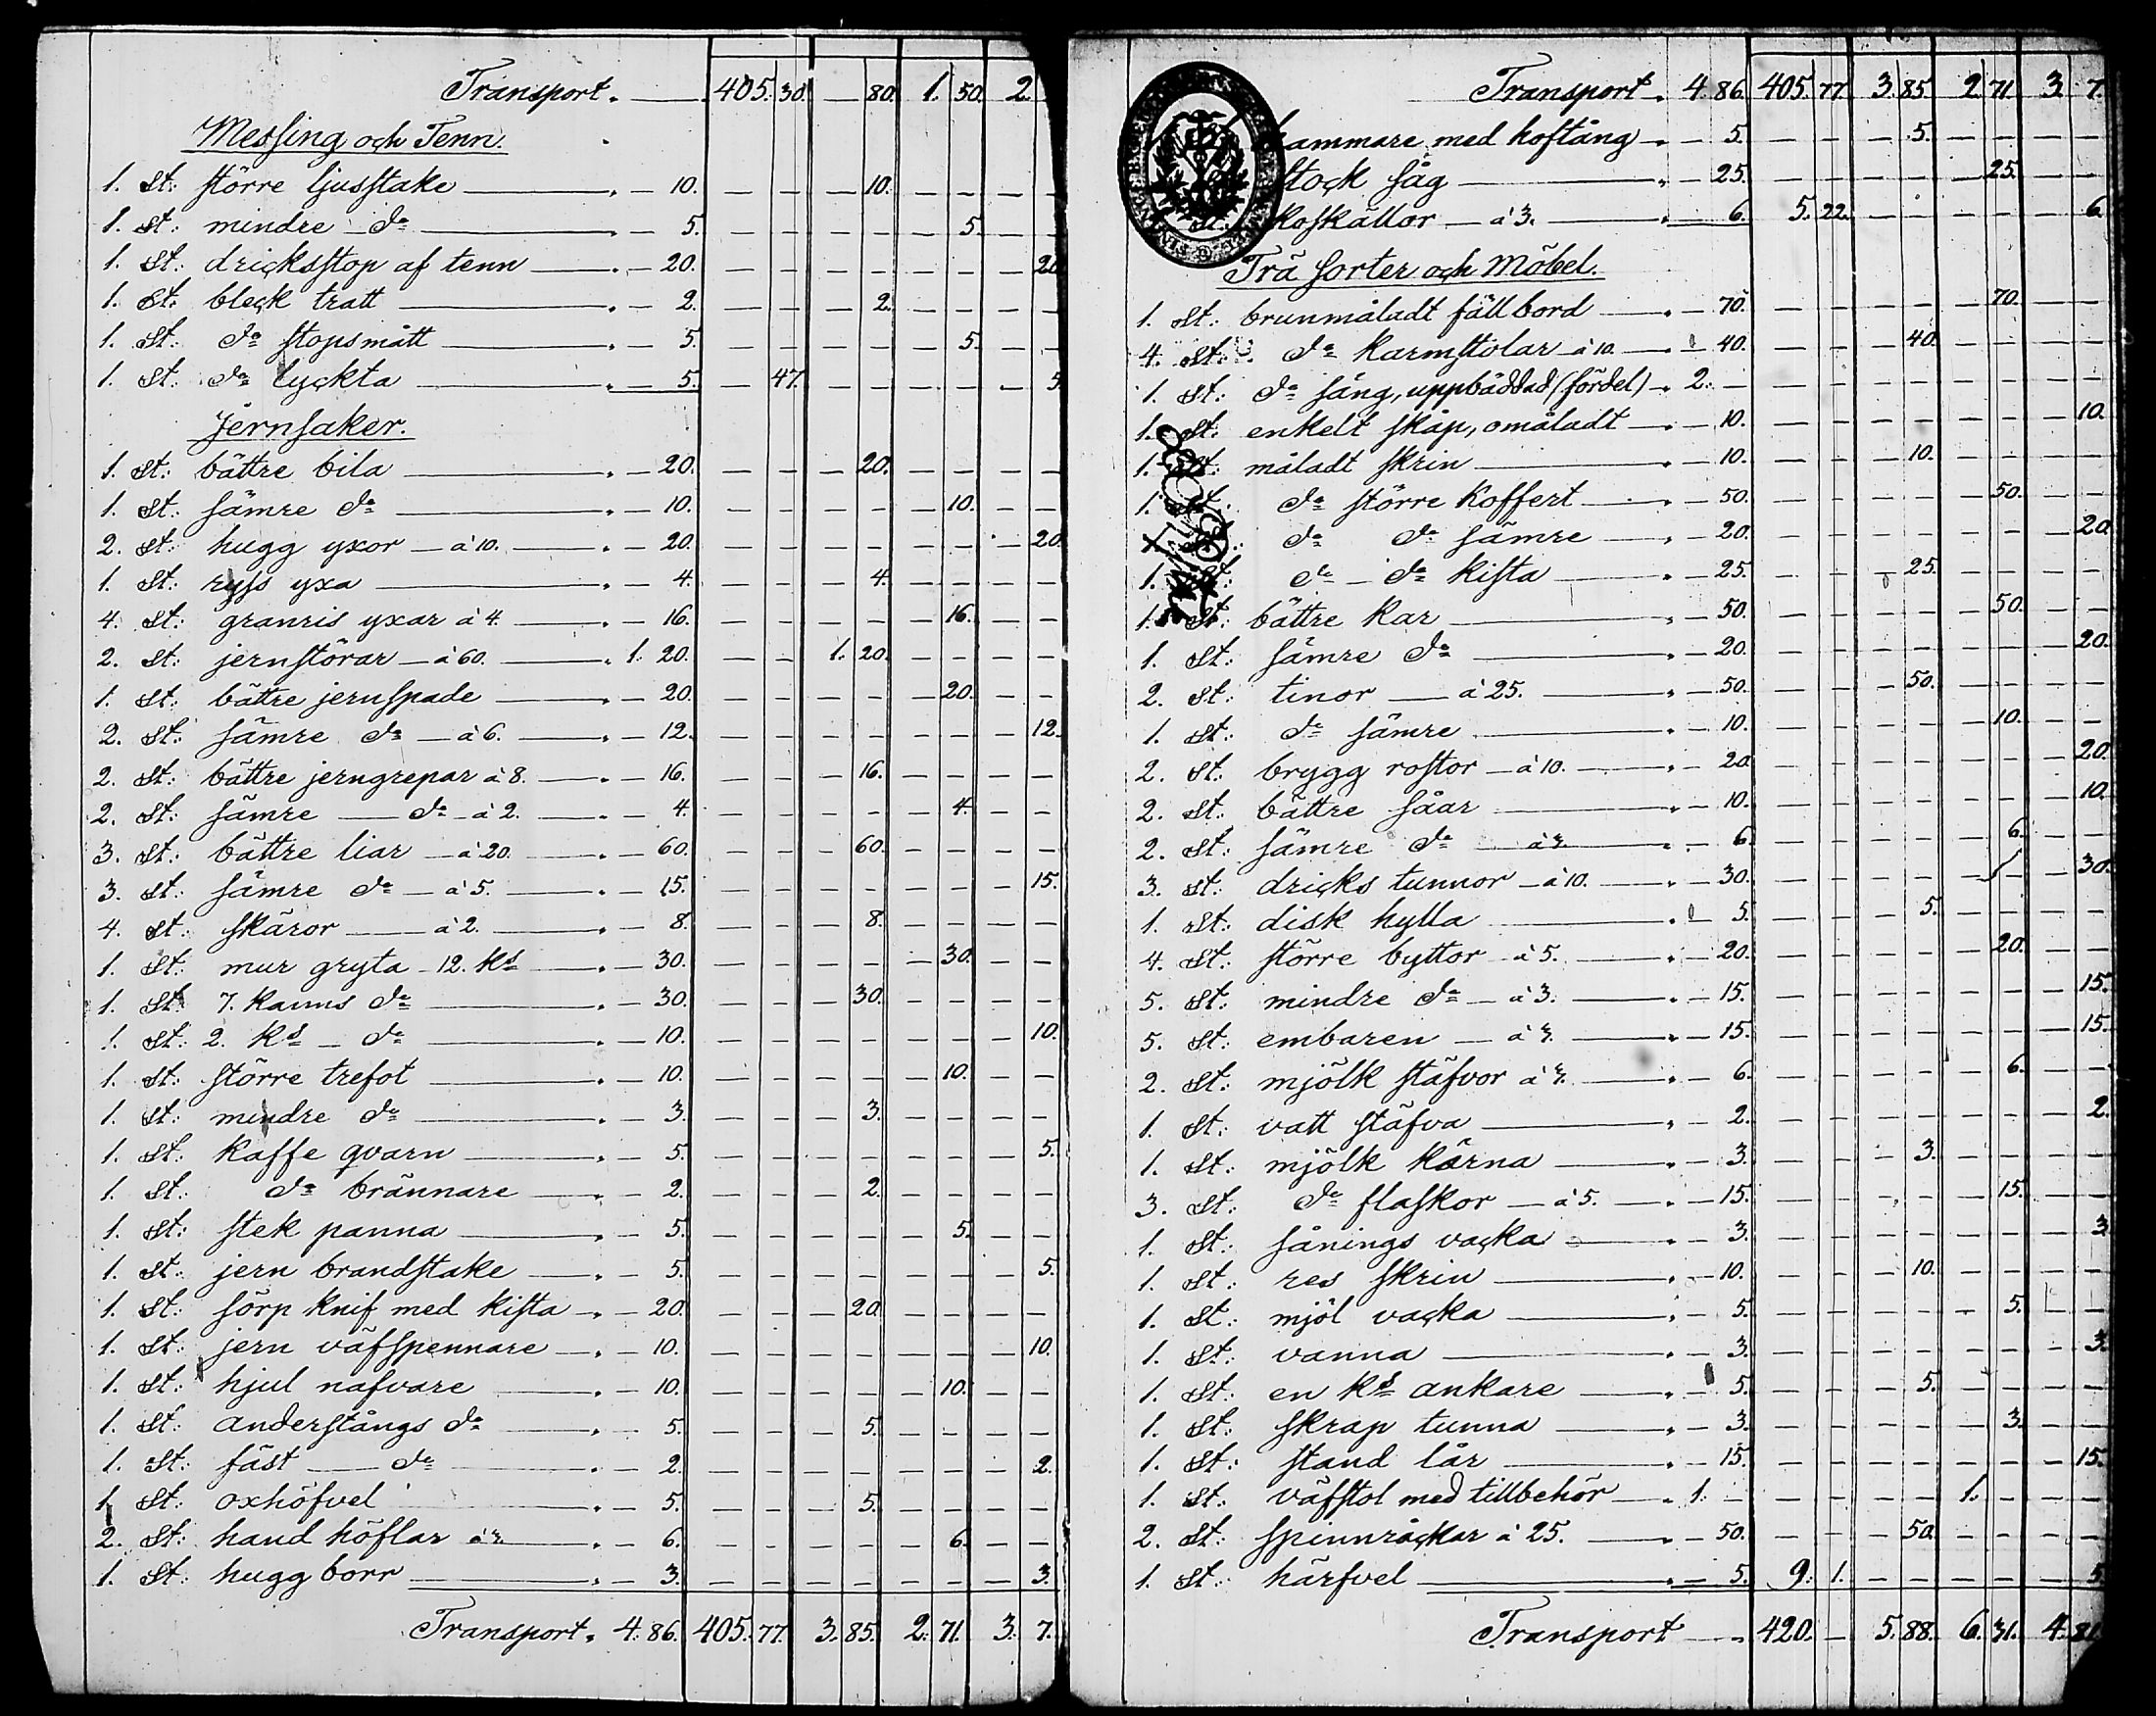 Transport. — 405. 30. — 80. 1. 50. 2.
Messing och Tenn.
1. St: större ljusstake — 10. — — — 10. — — — —
1. St: mindre do — 5. — — — — — 5. — —
1. St: dricksstop af tenn — 20. — — — — — — — 20
1. St: bleck tratt — 2. — — — 2. — — — —
1. St: do stopsmått — 5. — — — — — 5. — —
1. St: do lyckta — 5. — 47. — — — — — 5
Jernsaker.
1. St: bättre bila — 20. — — — 20. — — — —
1. St: sämre do — 10. — — — — — 10. — —
2. St: hugg yxor — à 10. — 20. — — — — — — — 20
1. St: ryss yxa — 4. — — — 4. — — — —
4. St: granris yxar à 4. — 16. — — — — — 16. — —
2. St: jernstörar — à 60. — 1. 20. — — 1. 20. — — — —
1. St: bättre jernspade — 20. — — — — — 20. — —
2. St: sämre do — à 6. — 12. — — — — — — — 12.
2. St: bättre jerngrepar à 8. — 16. — — — 16. — — — —
2. St: sämre — do — à 2. — 4. — — — — — 4. — —
3. St: bättre liar — à 20. — 60. — — — 60. — — — —
3. St: sämre do — à 5. — 15. — — — — — — — 15.
4. St: skäror — à 2. — 8. — — — 8. — — — —
1. St: mur gryta — 12. Ks — 30. — — — — — 30. — —
1. St: 7. kanns do — 30. — — — 30. — — — —
1. St: 2. Ks — do — 10. — — — — — — — 10.
1. St: större trefot — 10. — — — — — 10. — —
1. St: mindre do — 3. — — — 3. — — — —
1. St: Kaffe qvarn — 5. — — — — — — — 5.
1. St: do brännare — 2. — — — 2. — — — —
1. St: stek panna — 5. — — — — — 5. — —
1. St: jern brandstake — 5. — — — — — — — 5.
1. St: sörp knif med kista — 20. — — — 20. — — — —
1. St: jern väfspennare — 10. — — — — — — — 10.
1. St: hjul nafvare — 10. — — — — — 10. — —
1. St: anderstångs do — 5. — — — 5. — — — —
1. St: fäst — do — 2. — — — — — — — 2.
1. St: oxhöfvel — 5. — — — 5. — — — —
2. St: hand höflar à 3. — 6. — — — — — 6. — —
1. St: hugg borr — 3. — — — — — — — 3.
Transport. 4. 86. 405. 77. 3. 85. 2. 71. 3. 7.
Transport. 4. 86. 405. 77. 3. 85. 2. 71. 3. 7.
hammare med hoftång — 5. — — — 5. — — — —
stock såg — 25. — — — — — 25. — —
St: koskällor — à 3. — 6. 5. 22. — — — — — 6.
Trä sorter och Möbel.
1. St: brunmåladt fällbord — 70. — — — — — 70. — —
4. St: do karmstolar à 10. — 40. — — — 40. — — — —
1. St: do säng, uppbäddad (fördel) 2. — — — — — — — — —
1. St: enkelt skåp, omåladt — 10. — — — — — — — 10.
1. St: måladt skrin — 10. — — — 10. — — — —
1. St: do större Koffert — 50. — — — — — 50. — —
1. St: do do sämre — 20. — — — — — — — 20.
1. St: do — do kista — 25. — — — 25. — — — —
1. St: bättre kar — 50. — — — — — 50. — —
1. St: sämre do — 20. — — — — — — — 20.
2. St: tinor — à 25. — 50. — — — 50. — — — —
1. St: do sämre — 10. — — — — — 10. — —
2. St: brygg rostor — à 10. — 20. — — — — — — — 20.
2. St: bättre såar — 10. — — — — — — — 10.
2. St: sämre do — à 3. — 6. — — — — — 6. — —
3. St: dricks tunnor — à 10. — 30. — — — — — — — 30.
1. St: disk hylla — 5. — — — 5. — — — —
4. St: större byttor à 5. — 20. — — — — — 20. — —
5. St: mindre do — à 3. — 15. — — — — — — — 15.
5. St: embaren — à 3. — 15. — — — — — — — 15.
2. St: mjölk stäfvor à 3. — 6. — — — — — 6. — —
1. St: vatt stäfva — 2. — — — — — — — 2.
1. St: mjölk kärna — 3. — — — 3. — — — —
3. St: do flaskor — à 5. — 15. — — — — — 15. — —
1. St: sånings vacka — 3. — — — — — — — 3
1. St: res skrin — 10. — — — 10. — — — —
1. St: mjöl vacka — 5. — — — — — 5. — —
1. St: vanna — 3. — — — — — — — 3.
1. St: en Ks ankare — 5. — — — 5. — — — —
1. St: skrap tunna — 3. — — — — — 3. — —
1. St: stand lår — 15. — — — — — — — 15.
1. St: väfstol med tillbehör — 1. — — — — — 1. — — —
2. St: spinnråckar à 25. — 50. — — — 50. — — — —
1. St: härfvel — 5. 9. 1. — — — — — 5
Transport — 420. — 5. 88. 6. 31. 4. 81.